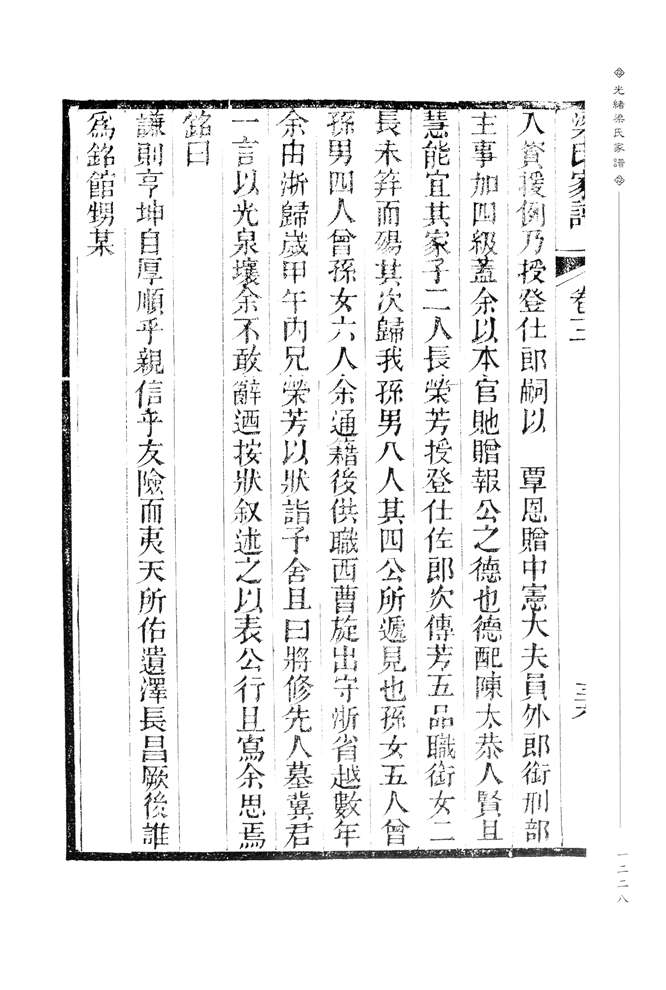 光緒梁氏家譜
一二二八
梁氏家譜 卷三 三六
入貲援例乃授登仕郎嗣以 覃恩贈中憲大夫員外郎銜刑部
主事加四級蓋余以本官貤贈報公之德也德配陳太恭人賢且
慧能宜其家子二人長榮芳授登仕佐郎次傳芳五品職銜女二
長未笄而殤其次歸我孫男八人其四公所遞見也孫女五人曾
孫男四人曾孫女六人余通籍後供職西曹旋出守浙省越數年
余由浙歸歲甲午內兄榮芳以狀詣予舍且曰將修先人墓冀君
一言以光泉壤余不敢辭迺按狀叙述之以表公行且寫余思焉
銘曰
謙則亨坤自厚順乎親信乎友險而夷天所佑遺澤長昌厥後誰
爲銘館甥某